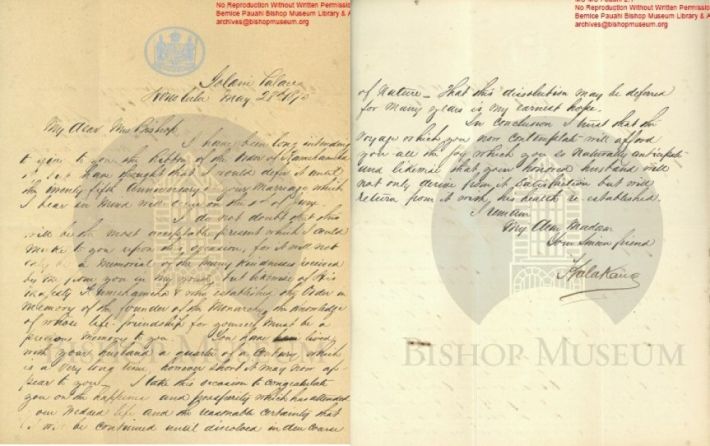 No Reproduction Without Written Permissio
Bernice Pauahi Bishop Museum Library & A
archives@bishopmuseum.org
Iolani Palace
Honolulu May 28th
My dear Mrs Bishop
I have been long intending
to give to you the Ribbon of the Order of Kamehameha
but have thought that I would defer it until
the twenty fifth Anniversary of your Marriage which
I bear in mind will occur on the of June.
I do not doubt that this
will be the most acceptable present which I could
make to you upon this occasion, for it will not
only be a Memorial of the many kindnesses received
by me from you in my youth, but likewise of His
Majesty Kamehameha V who established this Order in
Memory of the founder of the Monarchy the knowledge
of whose life-friendship for yourself must be a
precious memory to you. You have lived
with your husband a quarter of a Century, which
is a very long time, however short it may now ap-
pear to you. I take this occasion to congratulate
you on the happiness and prosperity which has attended
your Wedded life and the reasonable certainty that
it will be continued until dissolved in due course
No Reproduction Without Written Permissio
Bernice Pauahi Bishop Museum Library &
archives@bishopmuseum.org
of Nature – That this dissolution may be deferred
for many years is my earnest hope.
In Conclusion I trust that the
voyage which you now contemplate will afford
you all the joy which you so naturally anticipate
and likewise that your honored husband will
not only derive from it Satisfaction but will
return from it with his health re established.
I remain
My dear Madam
Your Sincere friend
Kalakaua
BISHOP MUSEUM
BISHOP MUSEUM